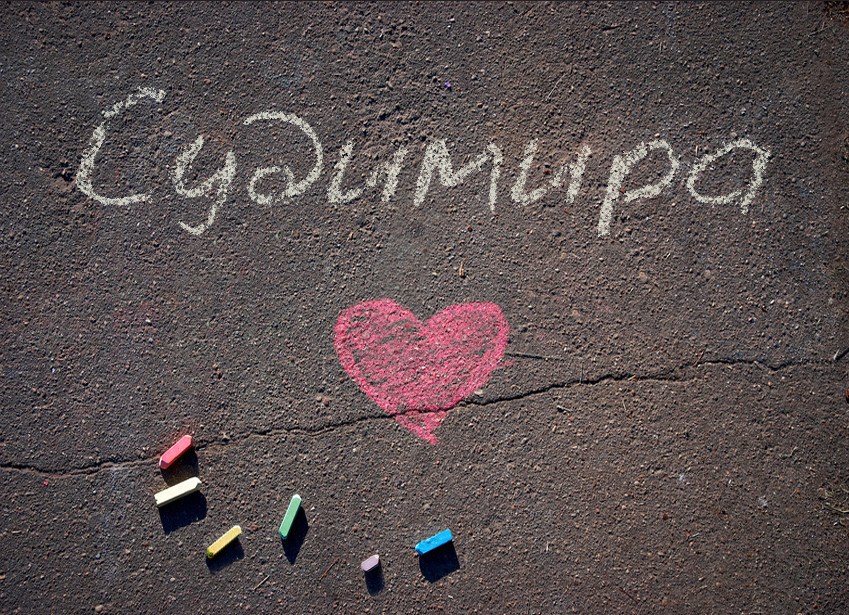 Судимира